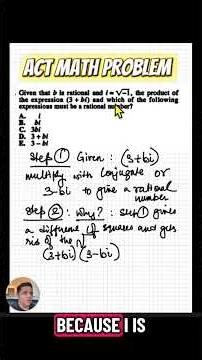 ACT MATH PROBLEM
Given that b is rational and i = √-1, the product of
the expression (3 + bi) and which of the following
expressions must be a rational number?
A. i
B. bi
C. 3bi
D. 3 + bi
E. 3 - bi
Step 1 Given: (3+bi)
multiply with conjugate or
3-bi to give a rational
number
Step 2: Why? : Step 1 gives
a difference of squares and gets
rid of the √
(3+bi)(3-bi)
BECAUSE I IS